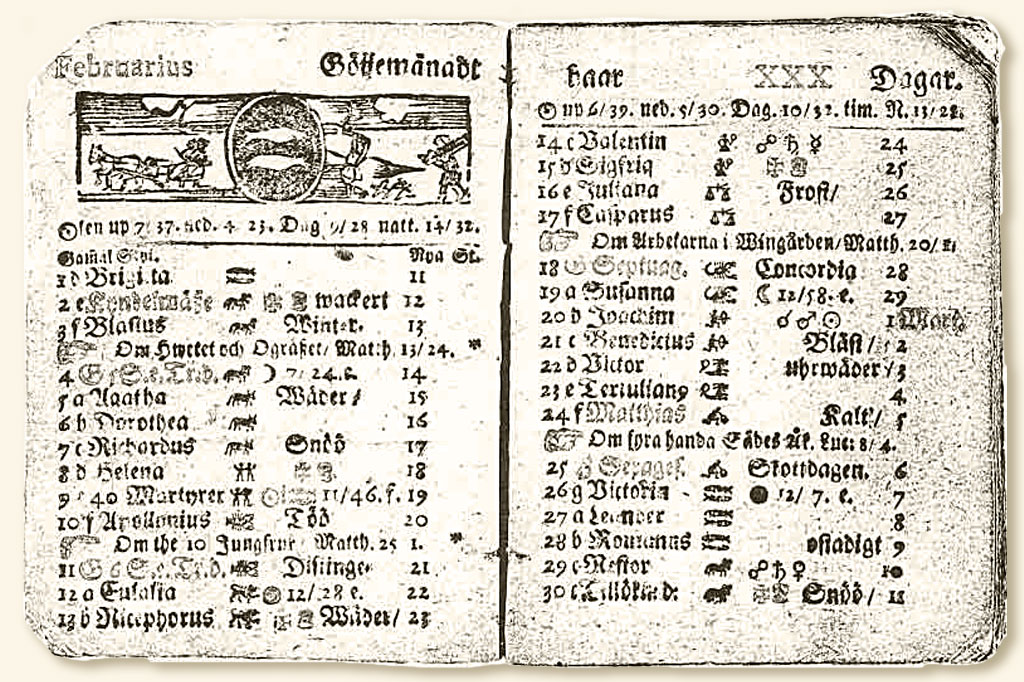 Februarius Göÿemånadt
Solen up 7/37. ned. 4 23. Dag 9/28 natt. 14/32.
Gamal Styl. Nya St.
1 d Brigitta 11
2 e Kyndelmässe wackert 12
3 f Blasius Winter. 13
Om Hwetet och Ogräset/ Matth. 13/24.
4 G 5 S. e. Tr.d. 7/24. e. 14
5 a Agatha Wäder/ 15
6 b Dorothea 16
7 c Richardus Snöö 17
8 d Helena 18
9 e 40 Martyrer 11/46. f. 19
10 f Apollonius Töö 20
Om the 10 Jungfrur Matth. 25 1.
11 G 6 S. e. Tr.d. Distinge 21
12 a Eulalia 12/28 e. 22
13 b Nicephorus Wäder/ 23
haar XXX Dagar.
☉ up 6/39. ned. 5/30. Dag. 10/32. tim. N. 13/28.
14 c Valentin ☍ ♄ ☿ 24
15 d Sigfrid 25
16 e Juliana Frost/ 26
17 f Casparus 27
Om Arbetarna i Wingården/ Matth. 20/1.
18 G Septuag. Concordia 28
19 a Susanna ☾ 12/58. e. 29
20 b Joachim ☌ ♂ ☉ 1 Mart.
21 c Benedictus Bläst/ 2
22 d Victor uhrwäder/ 3
23 e Tertulian9 4
24 f Matthias Kalt/ 5
Om fyra handa Sädes Åk. Luc. 8/4.
25 G Sexages. Skottdagen. 6
26 g Victoria ● 12/7. e. 7
27 a Leander 8
28 b Romanus ostadigt 9
29 c Nestor ☍ ♄ ♀ 10
30 Snöö/ 11